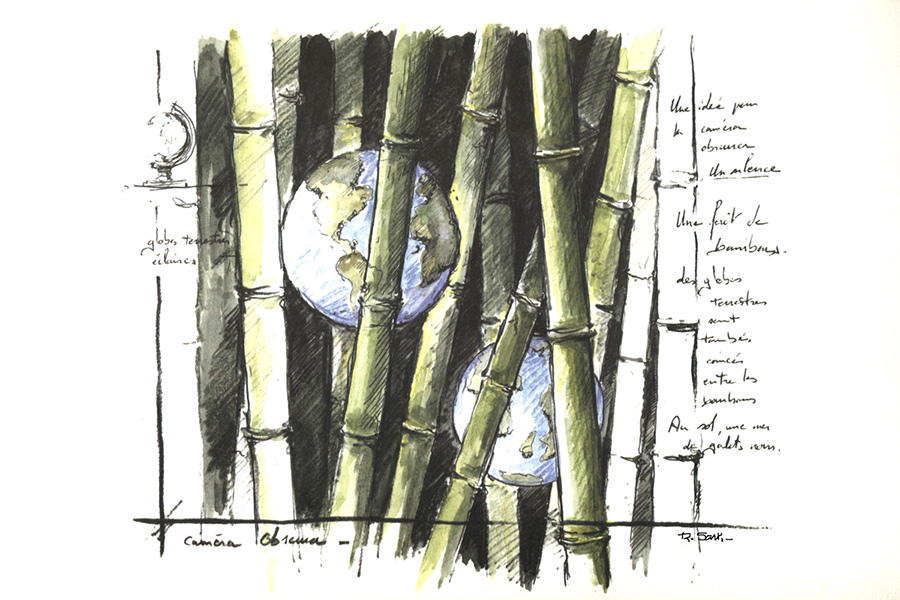 Une idée pour
la caméra
obscura
Un silence
Une forêt de
bambous.
des globes
terrestres
sont
tombés,
coincés
entre les
bambous
Au sol, une mer
de galets noirs.
globes terrestres
éclairés
Caméra Obscura -